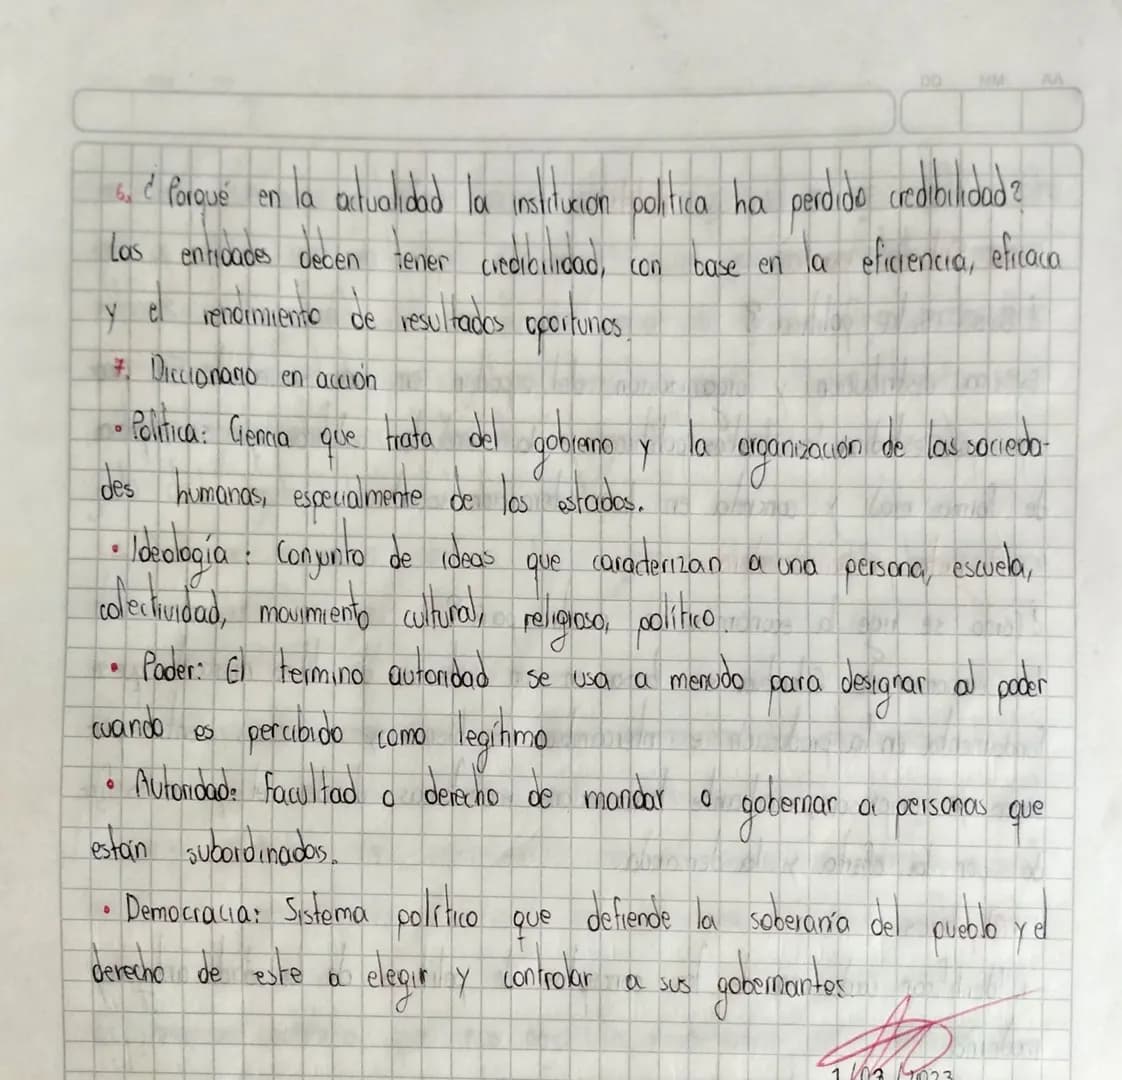 DD MM AA
6. ¿Porqué en la actualidad la institución política ha perdido credibilidad?
Las entidades deben tener credibilidad, con base en la eficiencia, eficaca
y el rendimiento de resultados oportunos.
7. Diccionario en acción
• Política: Ciencia que trata del gobierno y la organización de las socieda-
des humanas, especialmente de los estados.
• Ideología: Conjunto de ideas que caracterizan a una persona, escuela,
colectividad, movimiento cultural, religioso, político.
• Poder: El termino autoridad se usa a menudo para designar al poder
cuando es percibido como legítimo
• Autoridad: Facultad o derecho de mandar o gobernar a personas que
están subordinadas.
• Democracia: Sistema político que defiende la soberanía del pueblo y el
derecho de este a elegir y controlar a sus gobernantes.